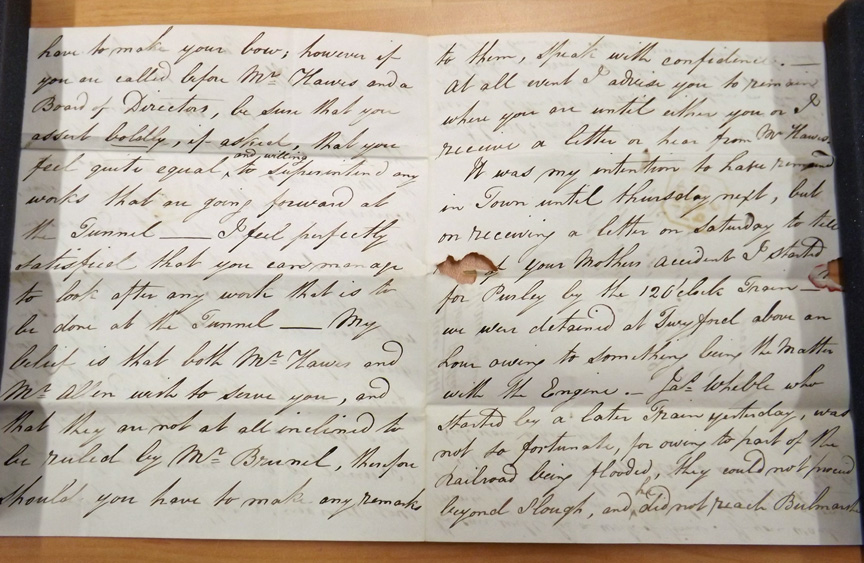 have to make your bow; however if
you are called before Mr. Hawes and a
Board of Directors, be sure that you
assert boldly, if asked, that you
feel quite equal, and willing, to superintend any
works that are going forward at
the Tunnel — I feel perfectly
satisfied that you can manage
to look after any work that is to
be done at the Tunnel — My
belief is that both Mr. Hawes and
Mr. Allen wish to serve you, and
that they are not at all inclined to
be ruled by Mr. Brunel, therefore
should you have to make any remarks
to them, speak with confidence. —
At all event I advise you to remain
where you are until either you or I
receive a letter or hear from Mr. Hawes.
It was my intention to have remained
in Town until thursday next, but
on receiving a letter on Saturday to tell
your Mothers accident I started
for Purley by the 12 O'clock Train —
we were detained at Twyford above an
hour owing to something being the Matter
with the Engine. — Jas. Wheble who
started by a later Train yesterday, was
not so fortunate, for owing to part of the
railroad being flooded, they could not proceed
beyond Slough, and he did not reach